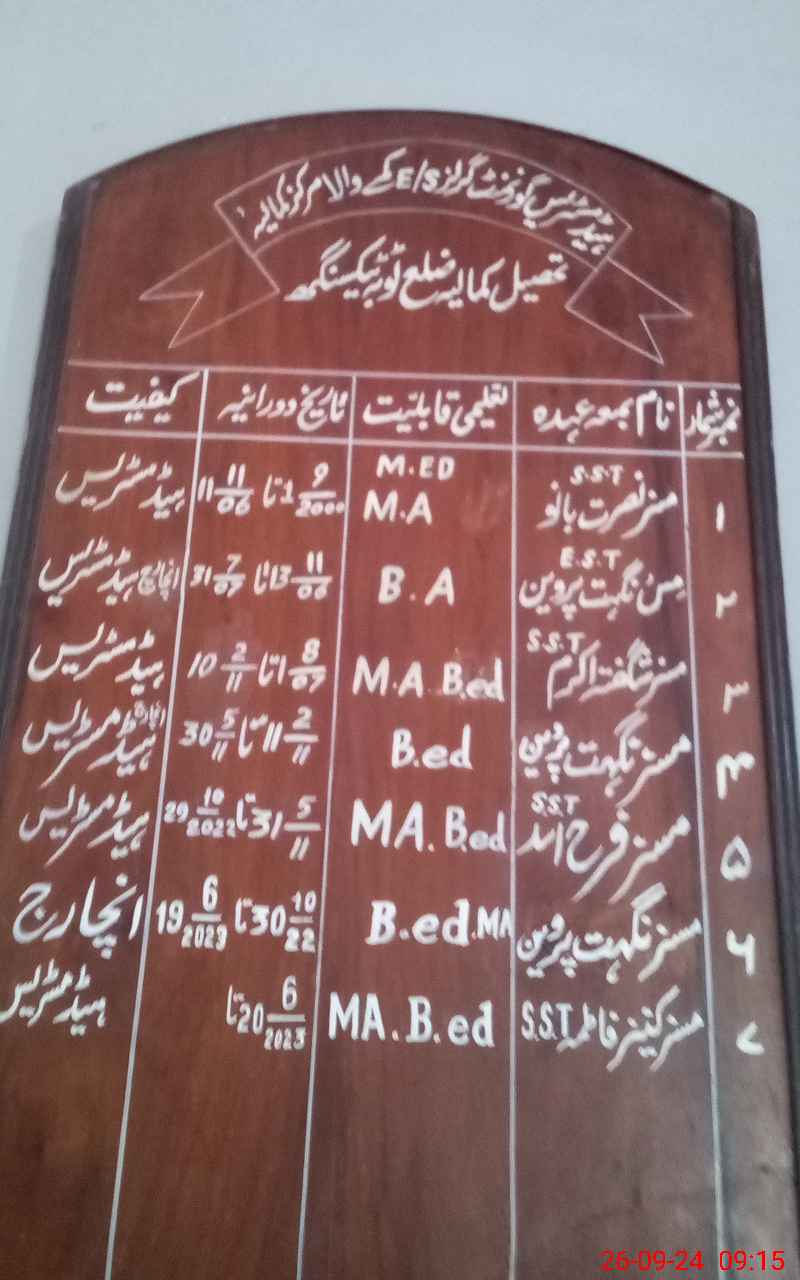 ہیڈ مسٹریس گورنمنٹ گرلز E/S کے والا مرکز کمالیہ
تحصیل کمالیہ ضلع ٹوبہ ٹیک سنگھ
نمبر شمار نام بمعہ عہدہ تعلیمی قابلیت تاریخ دورانیہ کیفیت
۱ مسز نصرت بانو S.S.T M.ED M.A 1 9/2000 تا 11 11/06 ہیڈ مسٹریس
۲ مس نگہت پروین E.S.T B.A 13 11/06 تا 31 7/07 انچارج ہیڈ مسٹریس
۳ مسز شگفتہ اکرم S.S.T M.A B.ed 1 8/07 تا 10 2/11 ہیڈ مسٹریس
۴ مسز نگہت پروین B.ed 11 2/11 تا 30 5/11 انچارج ہیڈ مسٹریس
۵ مسز فرح اسد S.S.T MA. B.ed 31 5/11 تا 29 10/2022 ہیڈ مسٹریس
۶ مسز نگہت پروین B.ed.MA 30 10/22 تا 19 6/2023 انچارج
۷ مسز کنیز فاطمہ S.S.T MA. B.ed 20 6/2023 تا ہیڈ مسٹریس
26-09-24 09:15